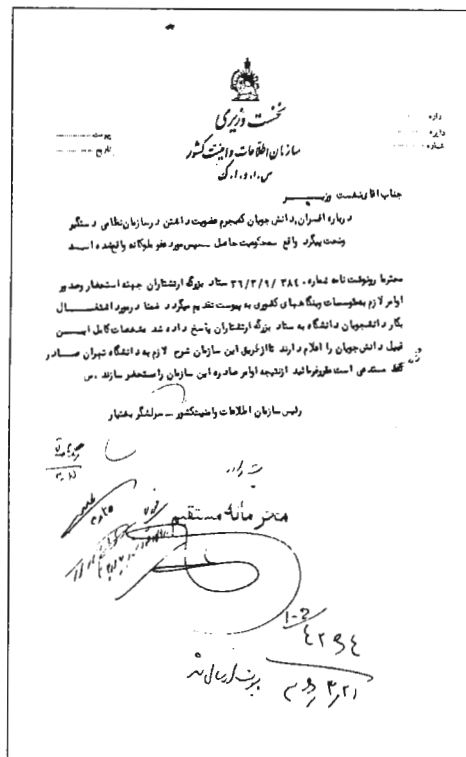 نخست وزیری
سازمان اطلاعات و امنیت کشور
س.ا.و.ا.ک
اداره
دایره
شماره
پیوست
تاریخ
جناب آقای نخست وزیر
درباره افسران و دانش جویان که بجرم عضویت داشتن در سازمان نظامی دستگیر
وتحت پیگرد واقع محکومیت حاصل سپس مورد عفو ملوکانه واقع شده است
محترما رونوشت نامه شماره ۳۸۴۰ /۳۶/۳/۹ ستاد بزرگ ارتشتاران جهت استحضار وصدور
اوامر لازم به موسسات وبنگاههای کشوری به پیوست تقدیم میگردد ضمنا در مورد اشتغال
بکار دانشجویان دانشگاه به ستاد بزرگ ارتشتاران پاسخ داده شد مشخصات کامل این
قبیل دانش جویان را اعلام دارند تا از طریق این سازمان شرح لازم به دانشگاه تهران صادر
مستدعی است مقرر فرمائید از نتیجه اوامر صادره این سازمان را مستحضر سازند . س
رئیس سازمان اطلاعات وامنیت کشور – سرلشگر بختیار
محرمانه مستقیم
۴۲۹۴
۳/۲۱